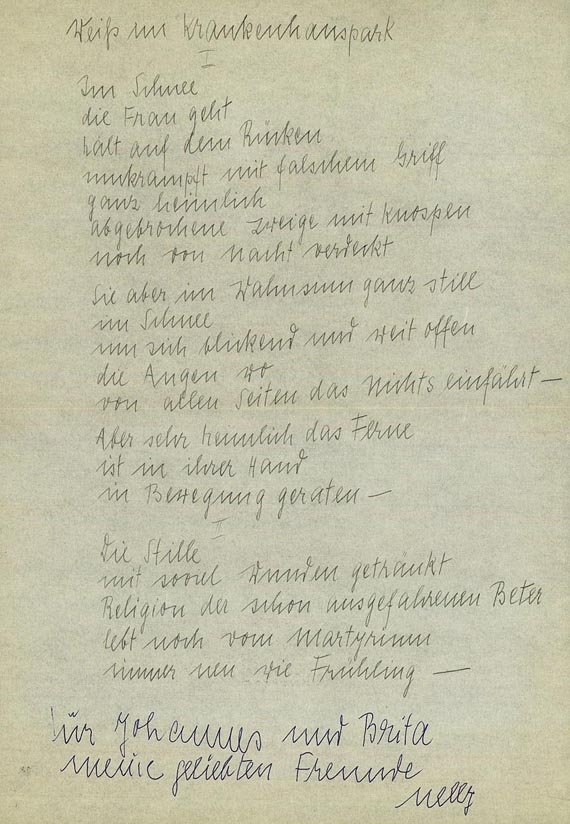 Weiß im Krankenhauspark
I
Im Schnee
die Frau geht
hält auf dem Rücken
umkrampft mit falschem Griff
ganz heimlich
abgebrochene Zweige mit Knospen
noch von Nacht verdeckt
Sie aber im Wahnsinn ganz still
im Schnee
um sich blickend und weit offen
die Augen wo
von allen Seiten das Nichts einfährt —
Aber sehr heimlich das Ferne
ist in ihrer Hand
in Bewegung geraten —
II
Die Stille
mit soviel Wunden getränkt
Religion der schon ausgefahrenen Beter
lebt noch vom Martyrium
immer neu wie Frühling —
für Johannes und Brita
meine geliebten Freunde
Nelly